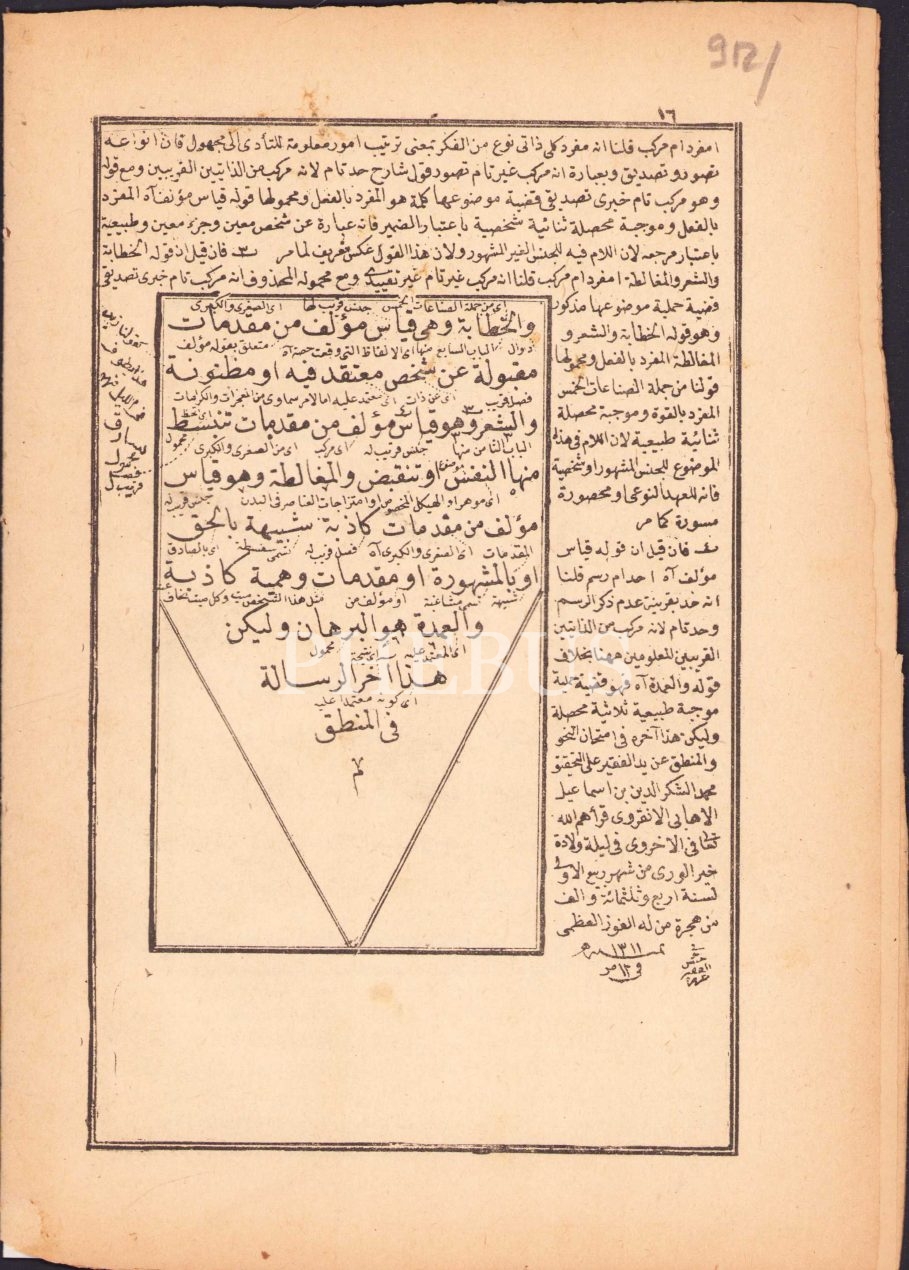 912/
١٦
امفرد ام مركب قلنا انه مفرد كلى ذاتى نوع من الفكر بمعنى ترتيب امور معلومة للتأدى الى مجهول فان انواعه
تصور وتصديق وبعبارة انه مركب غير تام تصور قول شارح حد تام لانه مركب من الذاتيين القريبين ومع قوله
وهو مركب تام خبرى تصديقى قضية موضوعها كلمة هو المفرد بالفعل ومحمولها قوله قياس مؤلف آه المفرد
بالفعل وموجبة محصلة ثنائية شخصية باعتبار الضمير فانه عبارة عن شخص معين وجزء معين وطبيعية
باعتبار مرجعه لان اللام فيه للجنس الغير المشهور ولان هذا القول عكس تعريف لما مر ٣ فان قيل ان قوله الخطابة
والشعر والمغالطة امفرد ام مركب قلنا انه مركب غير تام غير تقييدى ومع محموله المحذوف انه مركب تام خبرى تصديقى
قضية حملية موضوعها مذكور
وهو قوله الخطابة والشعر و
المغالطة المفرد بالفعل ومحمولها
قولنا من جملة الصناعات الخمس
المفرد بالقوة وموجبة محصلة
ثنائية طبيعية لان اللام فى هذا
الموضوع للجنس المشهور او شخصية
فانه للعهد النوعى او محصورة
مسورة كما مر
٤ فان قيل ان قوله قياس
مؤلف آه احد ام رسم قلنا
انه حد بقرينة عدم ذكر الرسم
وحد تام لانه مركب من الذاتيين
القريبين المعلومين ههنا بخلاف
قوله والعمدة آه فهو قضية حملية
موجبة طبيعية ثلاثية محصلة
وليكن هذا آخره فى امتحان النحو
والمنطق عن يد الفقير على التحقيق
محمد الشكر الدين بن اسماعيل
الاهابى الانقروى قرأهم الله
تعا فى الاخروى فى ليلة ولادة
خير الورى من شهر ربيع الاول
لسنة اربع وثلثمائة والف
من هجرة من له الفوز العظمى
سنه ١٣١١
فى ١٢ مر
اى من جملة الصناعات الخمس جنس قريب لها اى الصغرى والكبرى
والخطابة وهى قياس مؤلف من مقدمات
دوال الباب السابع منها اى الالفاظ التى وقعت حصة آه متعلق بقوله مؤلف
مقبولة عن شخص معتقد فيه او مظنونة
فصل قريب اى عن ذات اى معتمد عليه اما لامر سماوى من المعجزات والكرامات
والشعر وهو قياس مؤلف من مقدمات تنبسط
الباب الثامن منها جنس قريب له اى مركب اى من الصغرى والكبرى محمول
منها النفس او تنقبض والمغالطة وهو قياس
اى هو هر او الهيكل المخصوص او امتزاجات العناصر فى البدن جنس قريب له
مؤلف من مقدمات كاذبة شبيهة بالحق
المقدمات اى الصغرى والكبرى آه فصل قريب له تسمى سفسطة اى بالصادق
او بالمشهورة او مقدمات وهمية كاذبة
شبيهة تسمى مشاغبة او مؤلف من مثل هذا الشخص ميت وكل ميت يخاف
والعمدة هو البرهان وليكن
اى المعتمد عليه محمول
هذا آخر الرسالة
اى كونه معتمدا عليه
فى المنطق
م
PHEBUS